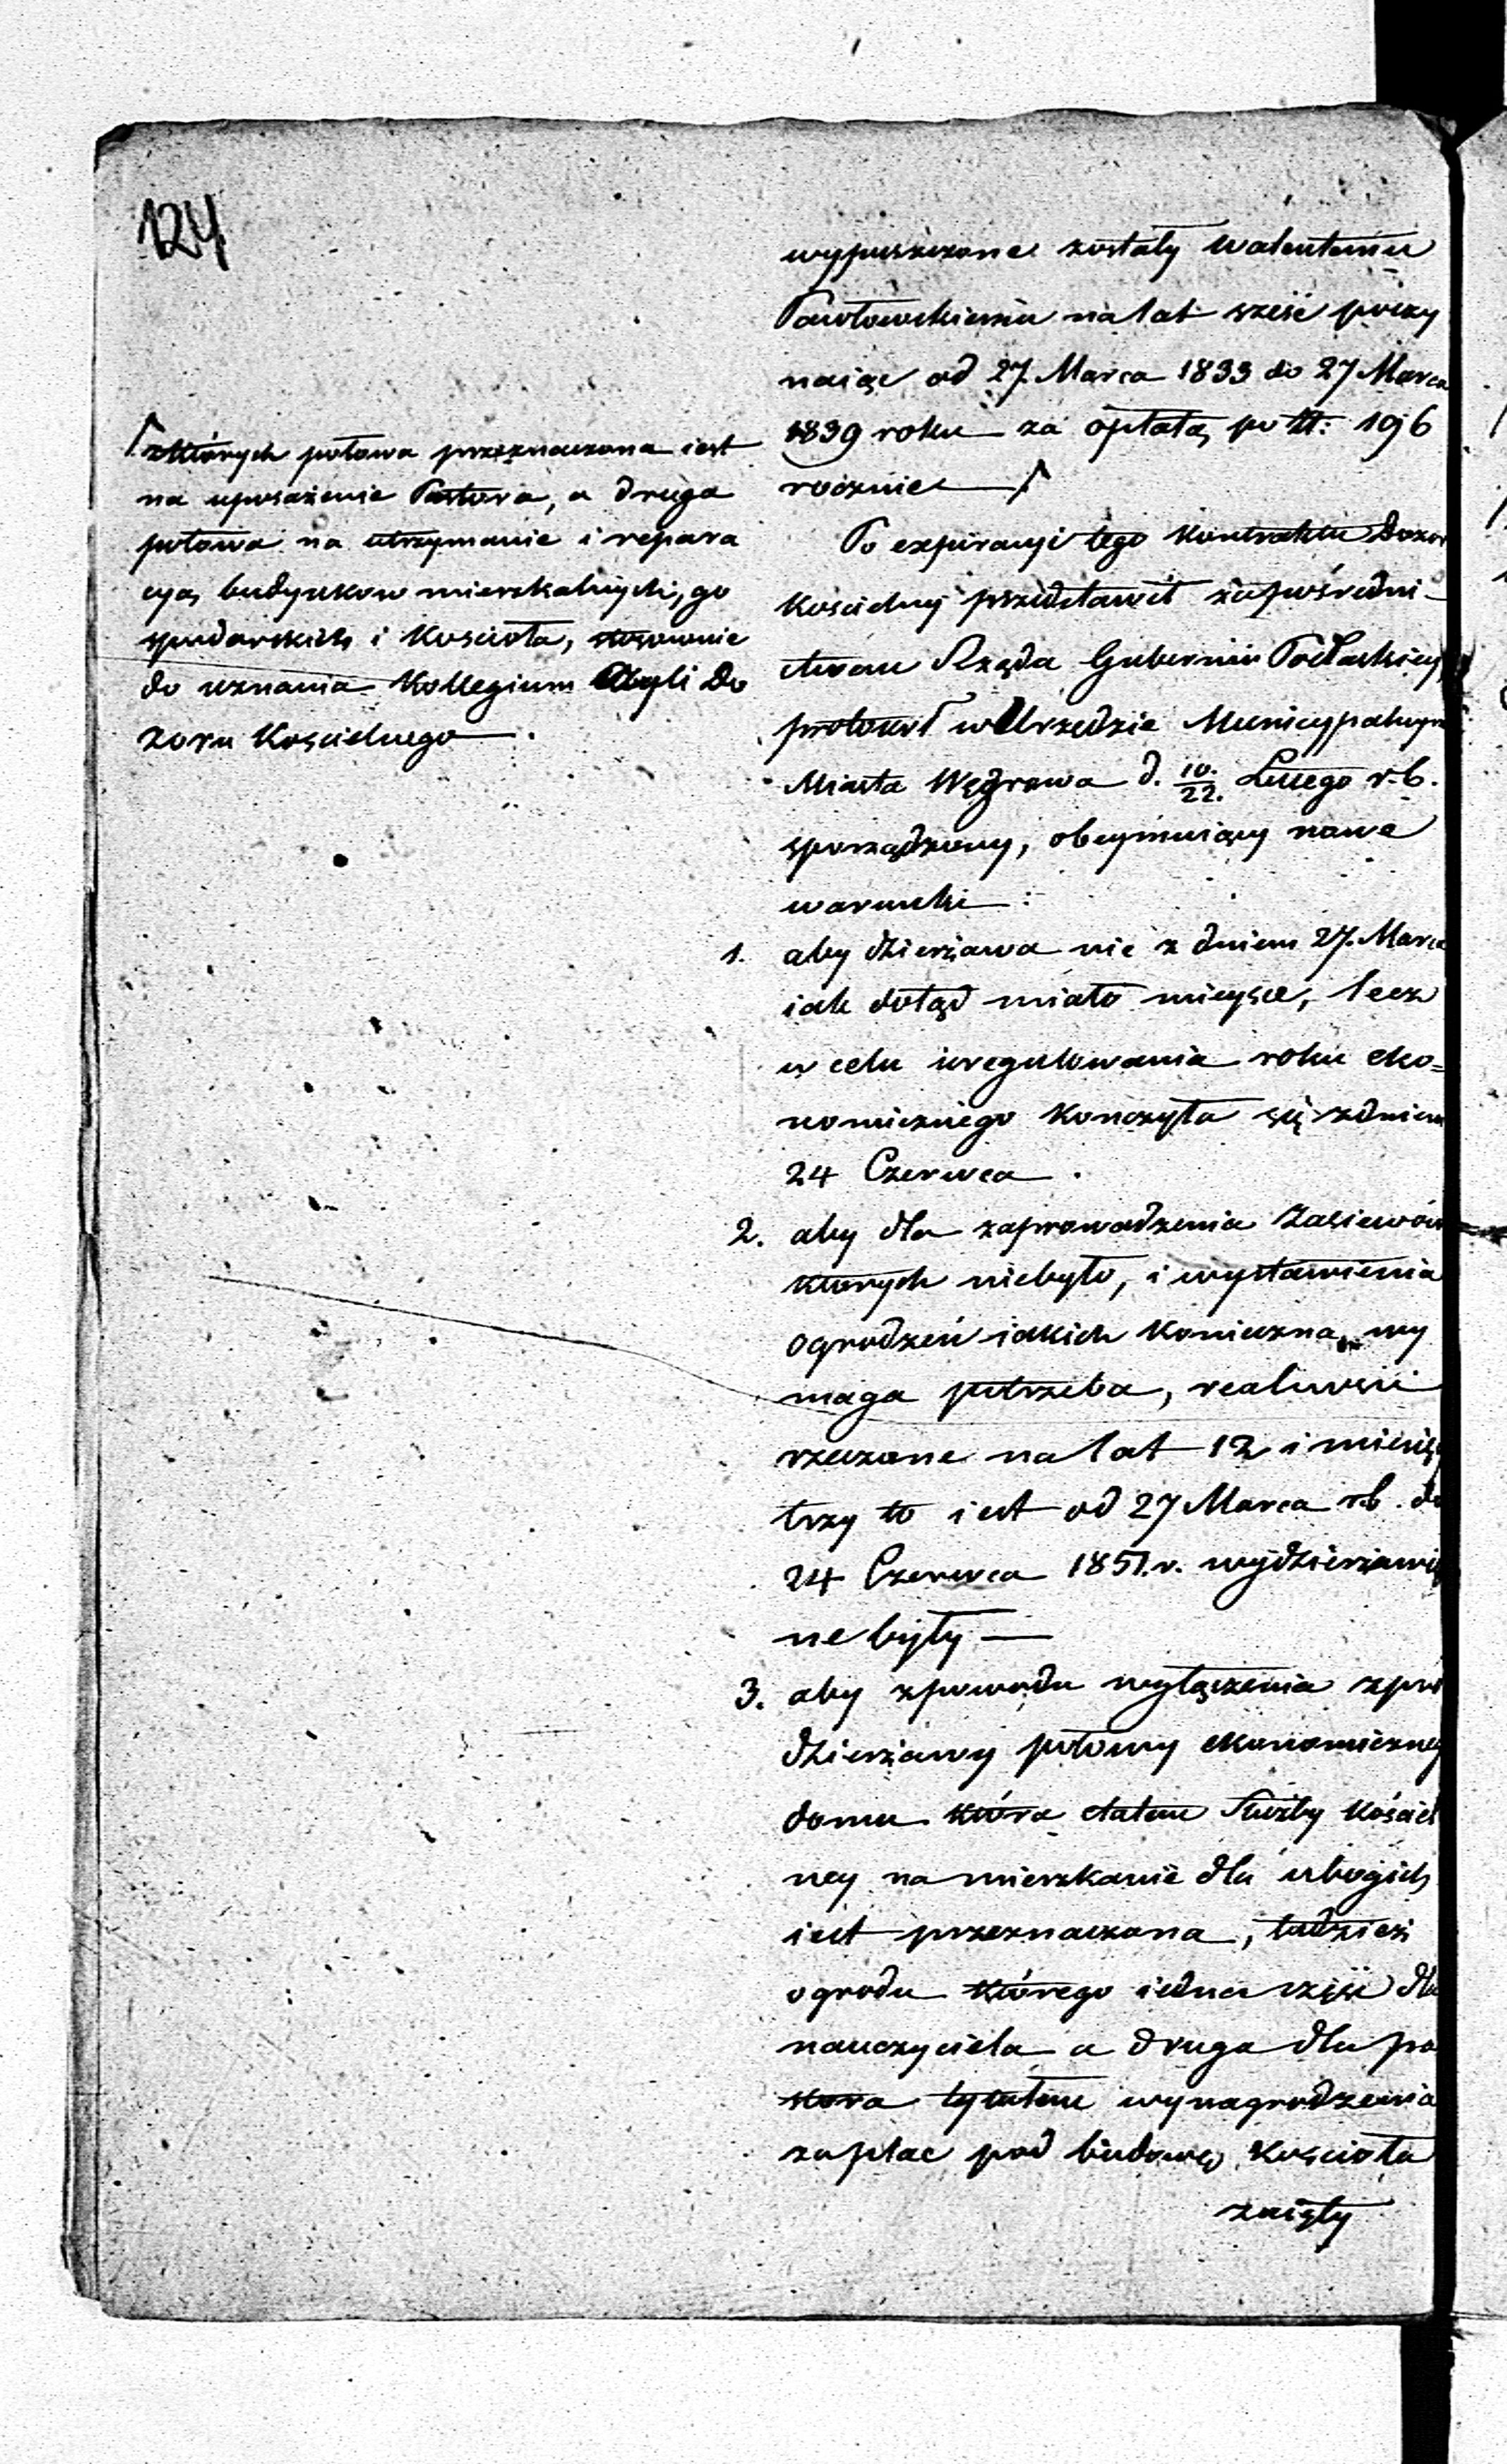 124
wypuszczone zostały Walentemu
Pawłowskiemu na lat sześć poczy
naiąc od 27 Marca 1833 do 27 Marca
1839 roku za opłatą po zł: 196
rocznie
z których połowa przeznaczona iest
na uposażenie Pastora, a druga
połowa na utrzymanie i repara
cyą budynkow mieszkalnych, go
spodarskich i Kościoła, stosownie
do uznania Kollegium czyli Do
zoru Kościelnego.
Po expiracyi tego Kontraktu Dozor
Kościelny przedstawił za pośredni-
ctwem Rządu Gubernii Podlaskiey
protokół w Urzędzie Municypalnym
Miasta Węgrowa d. 10./22. Lutego r. b.
sporządzony, obeymuiący nowe
warunki:
1. aby dzierżawa nie z dniem 27. Marca
iak dotąd miało mieysce, lecz
w celu uregulowania roku eko=
nomicznego Konczyła się z dniem
24 Czerwca.
2. aby dla zaprowadzenia Zasiewów
ktorych niebyło, i wystawienia
ogrodzeń iakich Konieczna wy
maga potrzeba, realności
rzeczone na lat 12 i miesię
trzy to iest od 27 Marca r.b. do
24 Czerwca 1851. r. wydzierżawio
ne były —
3. aby z powodu wyłączenia z pod
dzierżawy połowy ekonomicznego
domu która etatem Służby Kościel
ney na mieszkanie dla ubogich
iest przeznaczona, tudzież
ogrodu którego iedna część dla
nauczyciela a druga dla pa
stora tytułem wynagrodzenia
za plac pod budowę Kościoła
zaięty